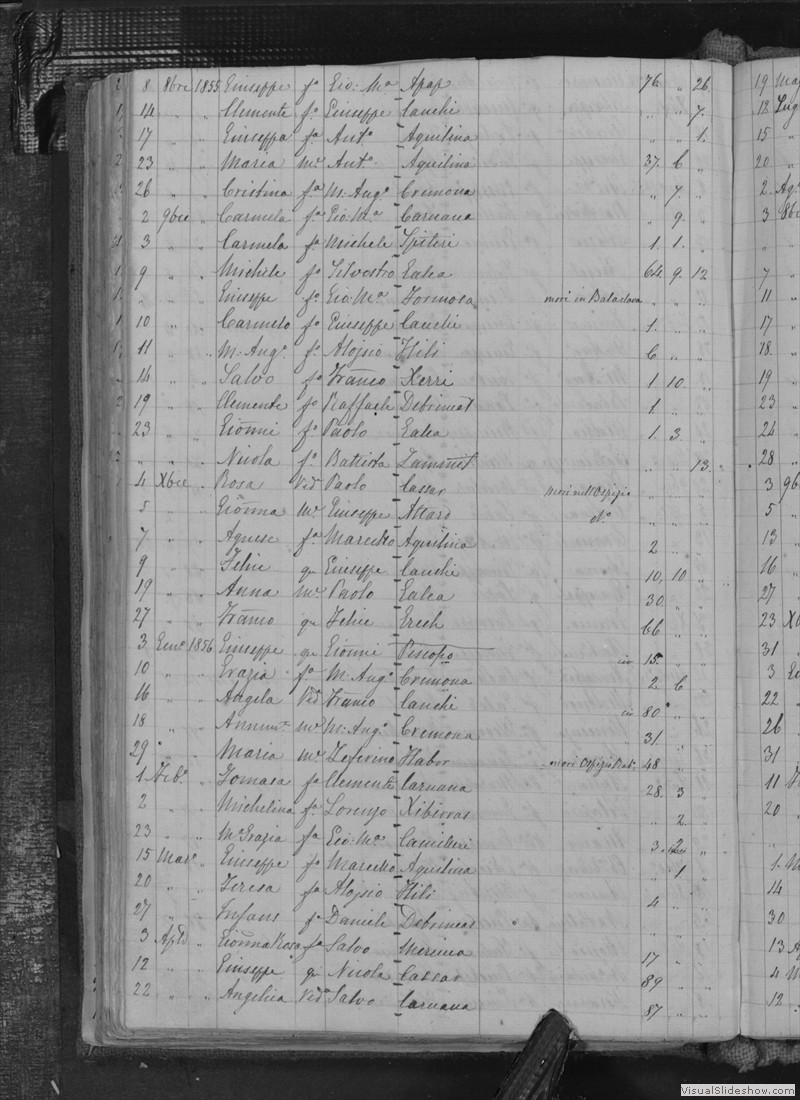 8 8bre 1855 Giuseppe fo Gio: Ma Apap 76 " 26
14 " " Clemente fo Giuseppe Cauchi " " 7.
17 " " Giuseppa fa Anto Aquilina " " 1.
23 " " Maria me Anto Aquilina 37. 6 "
26 " " Cristina fa M. Ango Cremona " 7. "
2 9bre " Carmela fa Gio Ma Caruana " 9. "
3 " " Carmela fa Michele Spiteri 1. 1. "
9 " " Michele fo Silvestro Galea 64 9. 12
" " " Giuseppe fo Gio: Ma Formosa mori in Balaclava " " "
10 " " Carmelo fo Giuseppe Cauchi 1. " "
11 " " M. Ango fo Aloisio Hili 6 " "
14 " " Salvo fo Franco Xerri 1 10 "
19 " " Clemente fo Raffaele Debrincat 1. " "
23 " " Gionni fo Paolo Galea 1. 3. "
" " " Nicola fo Battista Zammit " " 13.
4 Xbre " Rosa Vida Paolo Cassar mori nell'Ospizio " " "
5 " " Gionna me Giuseppe Attard do " " "
7 " " Agnese fa Marcello Aquilina 2 " "
9 " " Felice qm Giuseppe Cauchi 10, 10 "
19 " " Anna me Paolo Galea 30. " "
27 " " Franco qm Felice Grech 66 " "
3 Geno 1856 Giuseppe qm Gionni Piscopo 15. " "
10 " " Grazia fa M. Ango Cremona 2 6
16 " " Angela Vida Franco Cauchi 80 " "
18 " " me M. Ango Cremona 31. " "
29 " " Maria me Zeferino Habor mori Ospizio 48 " "
1 Febo " Tomasa fa Clemente Caruana 28. 3
2 " " Michelina fa Lorenzo Xiberras " 2. "
23 " " Ma Grazia fa Gio: Ma Camilleri 3. "
15 Marzo " Giuseppe fo Marcello Aquilina " 1 "
20 " " Teresa fa Aloisio Hili 4 " "
27 " " Infans fo Daniele Debrincat " " "
3 Aple " Gionna Rosa fa Salvo Mercieca 17 " "
12 " " Giuseppe qm Nicola Cassar 89 " "
22 " " Angelica Vida Salvo Caruana 87 " "
19
12 Lug
15 "
20 "
2. Ago
3 8bre
7 "
11 "
17 "
18. "
19 "
23 "
24 "
28 "
3 9b
5 "
13 "
16 "
27 "
23 X
31 "
3
22 "
26 "
31 "
11
20 "
1.
14 "
30 "
13
4
12 "
VisualSlideshow.com